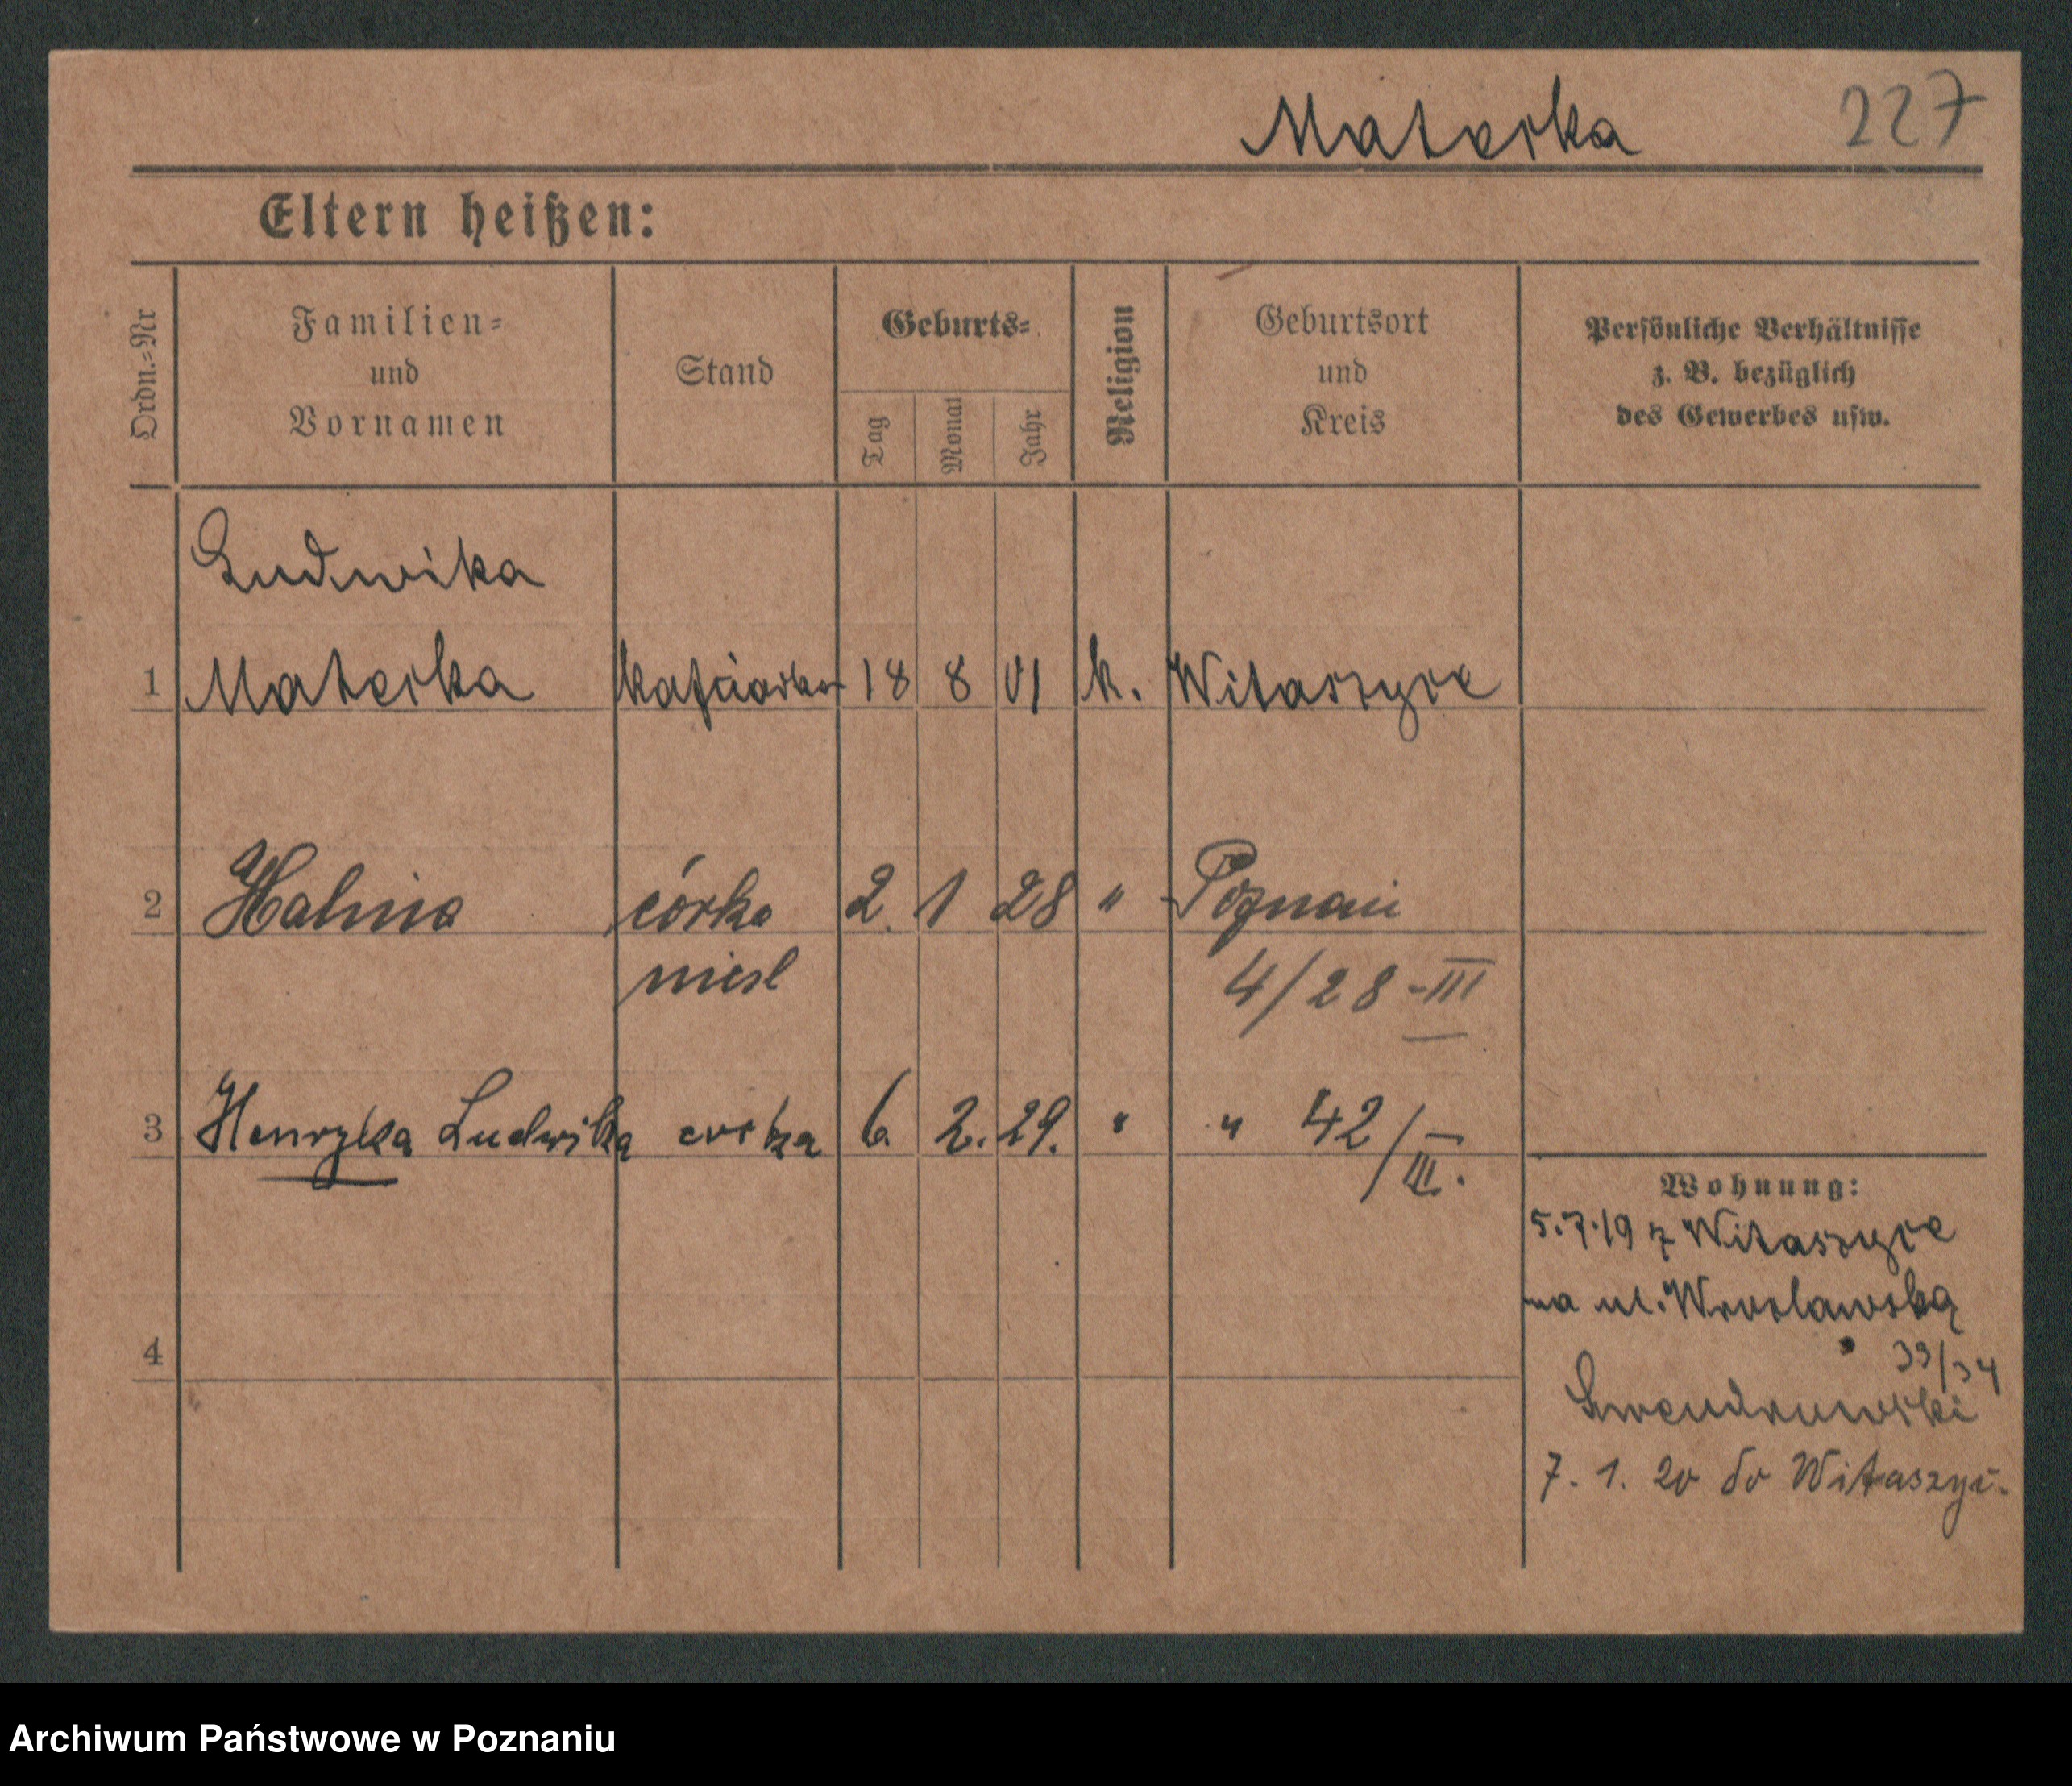 Materka 227
Eltern heißen:
Ordn.=Nr
Familien=
und
Vornamen
Stand
Geburts=
Tag
Monat
Jahr
Religion
Geburtsort
und
Kreis
Persönliche Verhältnisse
z. B. bezüglich
des Gewerbes usw.
Ludwika
1 Materka 18 8 01 k. Witaszyce
2 Halina córka 2. 1 28 " Poznań
nieśl 4/28-III
3 Henryka Ludwika córka 6. 2. 29. " " 42/III.
Wohnung:
5.7.19 z Witaszyce
na ul. Wrocławską
33/34
4
7. 1. 20 do Witaszyc.
Archiwum Państwowe w Poznaniu